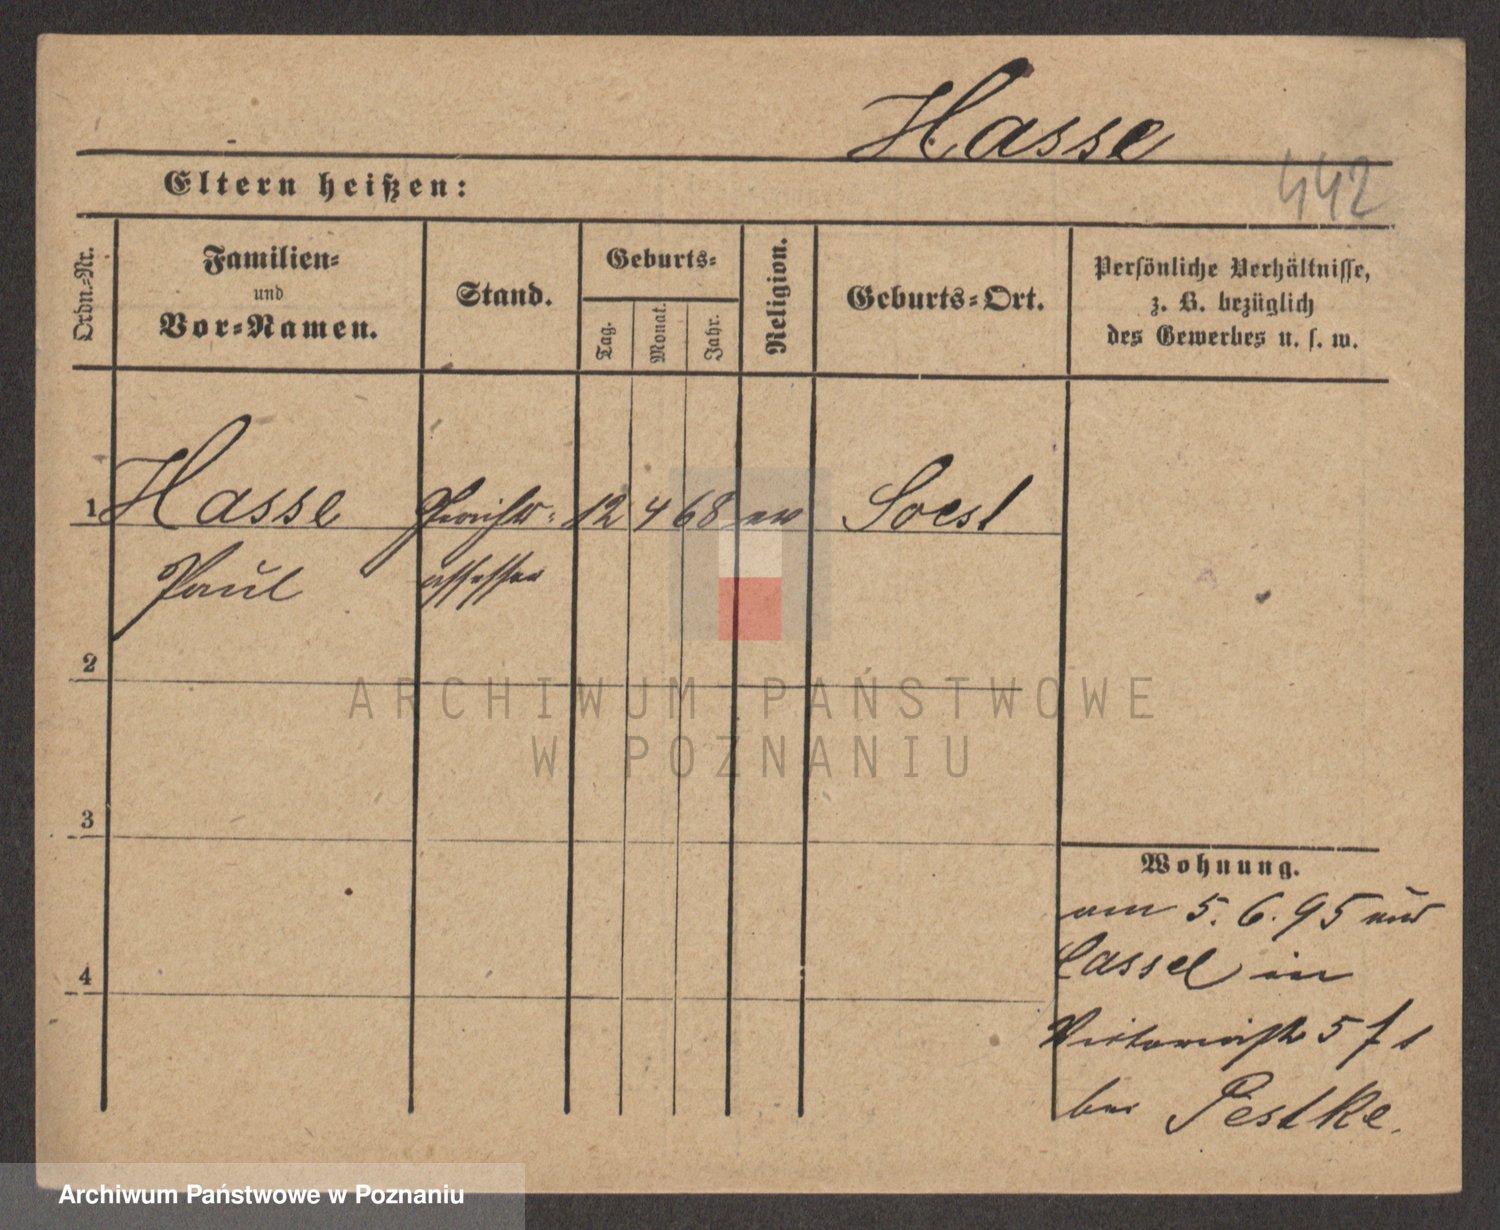 Hasse
Eltern heißen:
442
Ordn.-Nr.
Familien-
und
Vor-Namen.
Stand.
Geburts-
Tag.
Monat.
Jahr.
Religion.
Geburts-Ort.
Persönliche Verhältnisse,
z. B. bezüglich
des Gewerbes u. s. w.
1 Hasse Gerichts- 12 4 68 ev Soest
Paul assessor
2
ARCHIWUM PAŃSTWOWE
W POZNANIU
3
Wohnung.
am 5. 6. 95 aus
4
Cassel in
Victoriastr 5
bei Pestke.
Archiwum Państwowe w Poznaniu